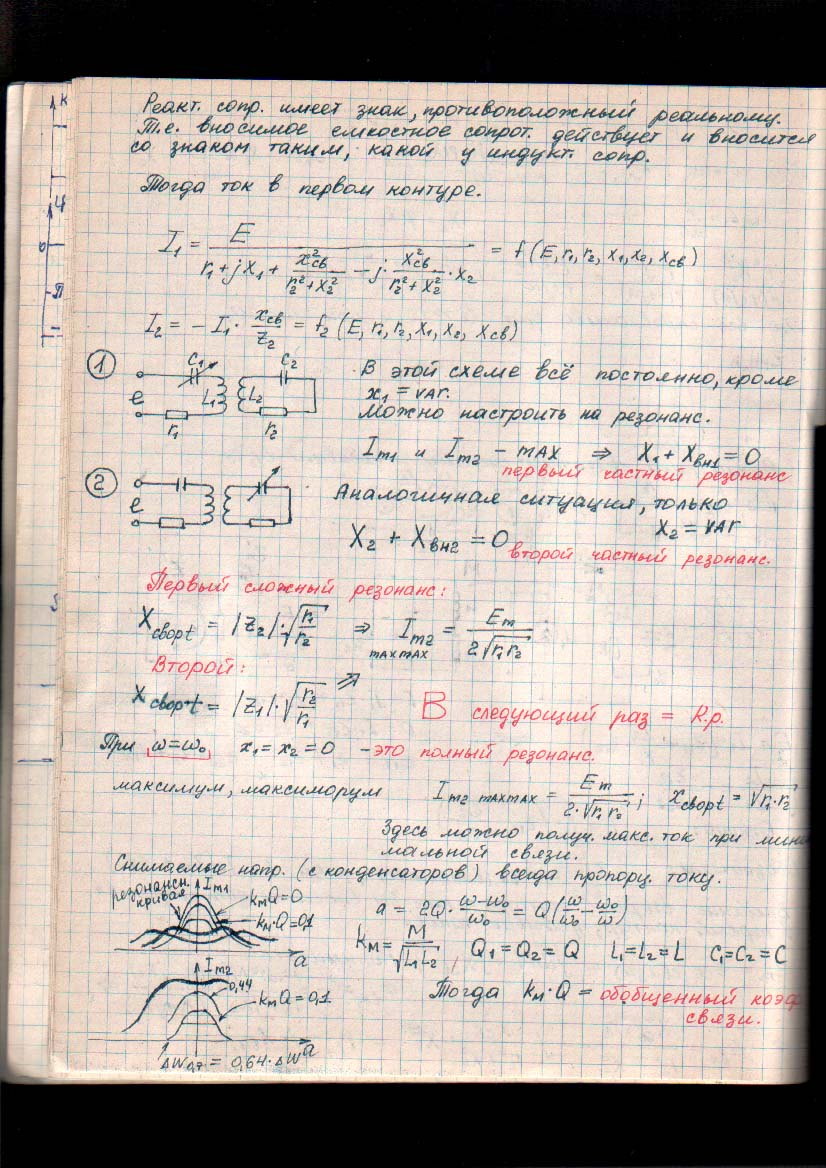 Реакт. сопр. имеет знак, противоположный реальному.
Т.е. вносимое емкостное сопрот. действует и вносится
со знаком таким, какой у индукт. сопр.
Тогда ток в первом контуре.
I₁ = E / (r₁ + jX₁ + x²св / (r₂² + X₂²) − j · X²св / (r₂² + X₂²) · x₂) = f (E, r₁, r₂, X₁, x₂, x св)
I₂ = − I₁ · xсв / Z₂ = f₂ (E, r₁, r₂, X₁, X₂, Xсв)
1
C₁ C₂
e L₁ L₂
r₁ r₂
В этой схеме всё постоянно, кроме
x₁ = var.
Можно настроить на резонанс.
Im1 и Im2 − max ⇒ X₁ + Xвн1 = 0
первый частный резонанс
2
e
Аналогичная ситуация, только
X₂ = var
X₂ + Xвн2 = 0
второй частный резонанс.
Первый сложный резонанс:
Xсвopt = |Z₂| · √(r₁/r₂) ⇒ Im2 maxmax = Em / 2√(r₁r₂)
Второй:
Xсвopt = |Z₁| · √(r₂/r₁)
В следующий раз = К.р.
При ω = ω₀ x₁ = x₂ = 0 - это полный резонанс.
максимум, максиморум Im2 maxmax = Em / 2·√(r₁ r₂) ; xсвopt = √(r₁·r₂)
Здесь можно получ. макс. ток при мини
мальной связи.
Снимаемые напр. (с конденсаторов) всегда пропорц. току.
резонансн.
кривая
Im1
kмQ=0
kм·Q=0,1
a
a = 2Q · (ω−ω₀)/ω₀ = Q(ω/ω₀ − ω₀/ω)
kм = M / √(L₁L₂) , Q₁ = Q₂ = Q L₁=L₂=L C₁=C₂=C
Im2
0,44
kмQ=0,1
a
Тогда kм·Q = обобщенный коэф
связи.
ΔW0,7 = 0,64·ΔW